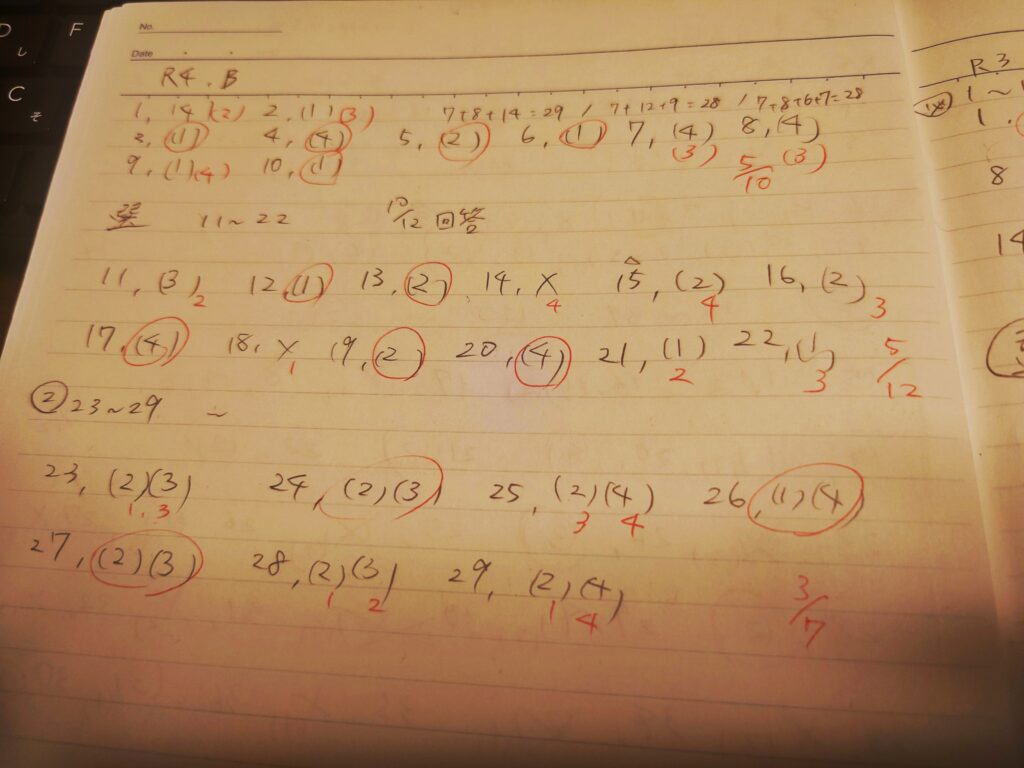 D し F
C そ
No.
Date
R4.B
1, 14 (2) 2, (1) (3) 7+8+14=29 / 7+12+9=28 / 7+8+6+7=28
3, (1) 4, (4) 5, (2) 6, (1) 7, (4) 8, (4)
(3) 5/10 (3)
9, (1) (4) 10, (1)
選 11~22 10/12 回答
11, (3) 2 12 (1) 13, (2) 14, X 4 15, (2) 4 16, (2) 3
17, (4) 18, X 1 19, (2) 20, (4) 21, (1) 2 22, (1) 3 5/12
② 23~29 ~
23, (2)(3) 24, (2)(3) 25, (2)(4) 26, (1)(4)
1, 3 3 4
27, (2)(3) 28, (2)(3) 29, (2)(4)
1 2 1 4 3/7
R3
1~
1.
8
14